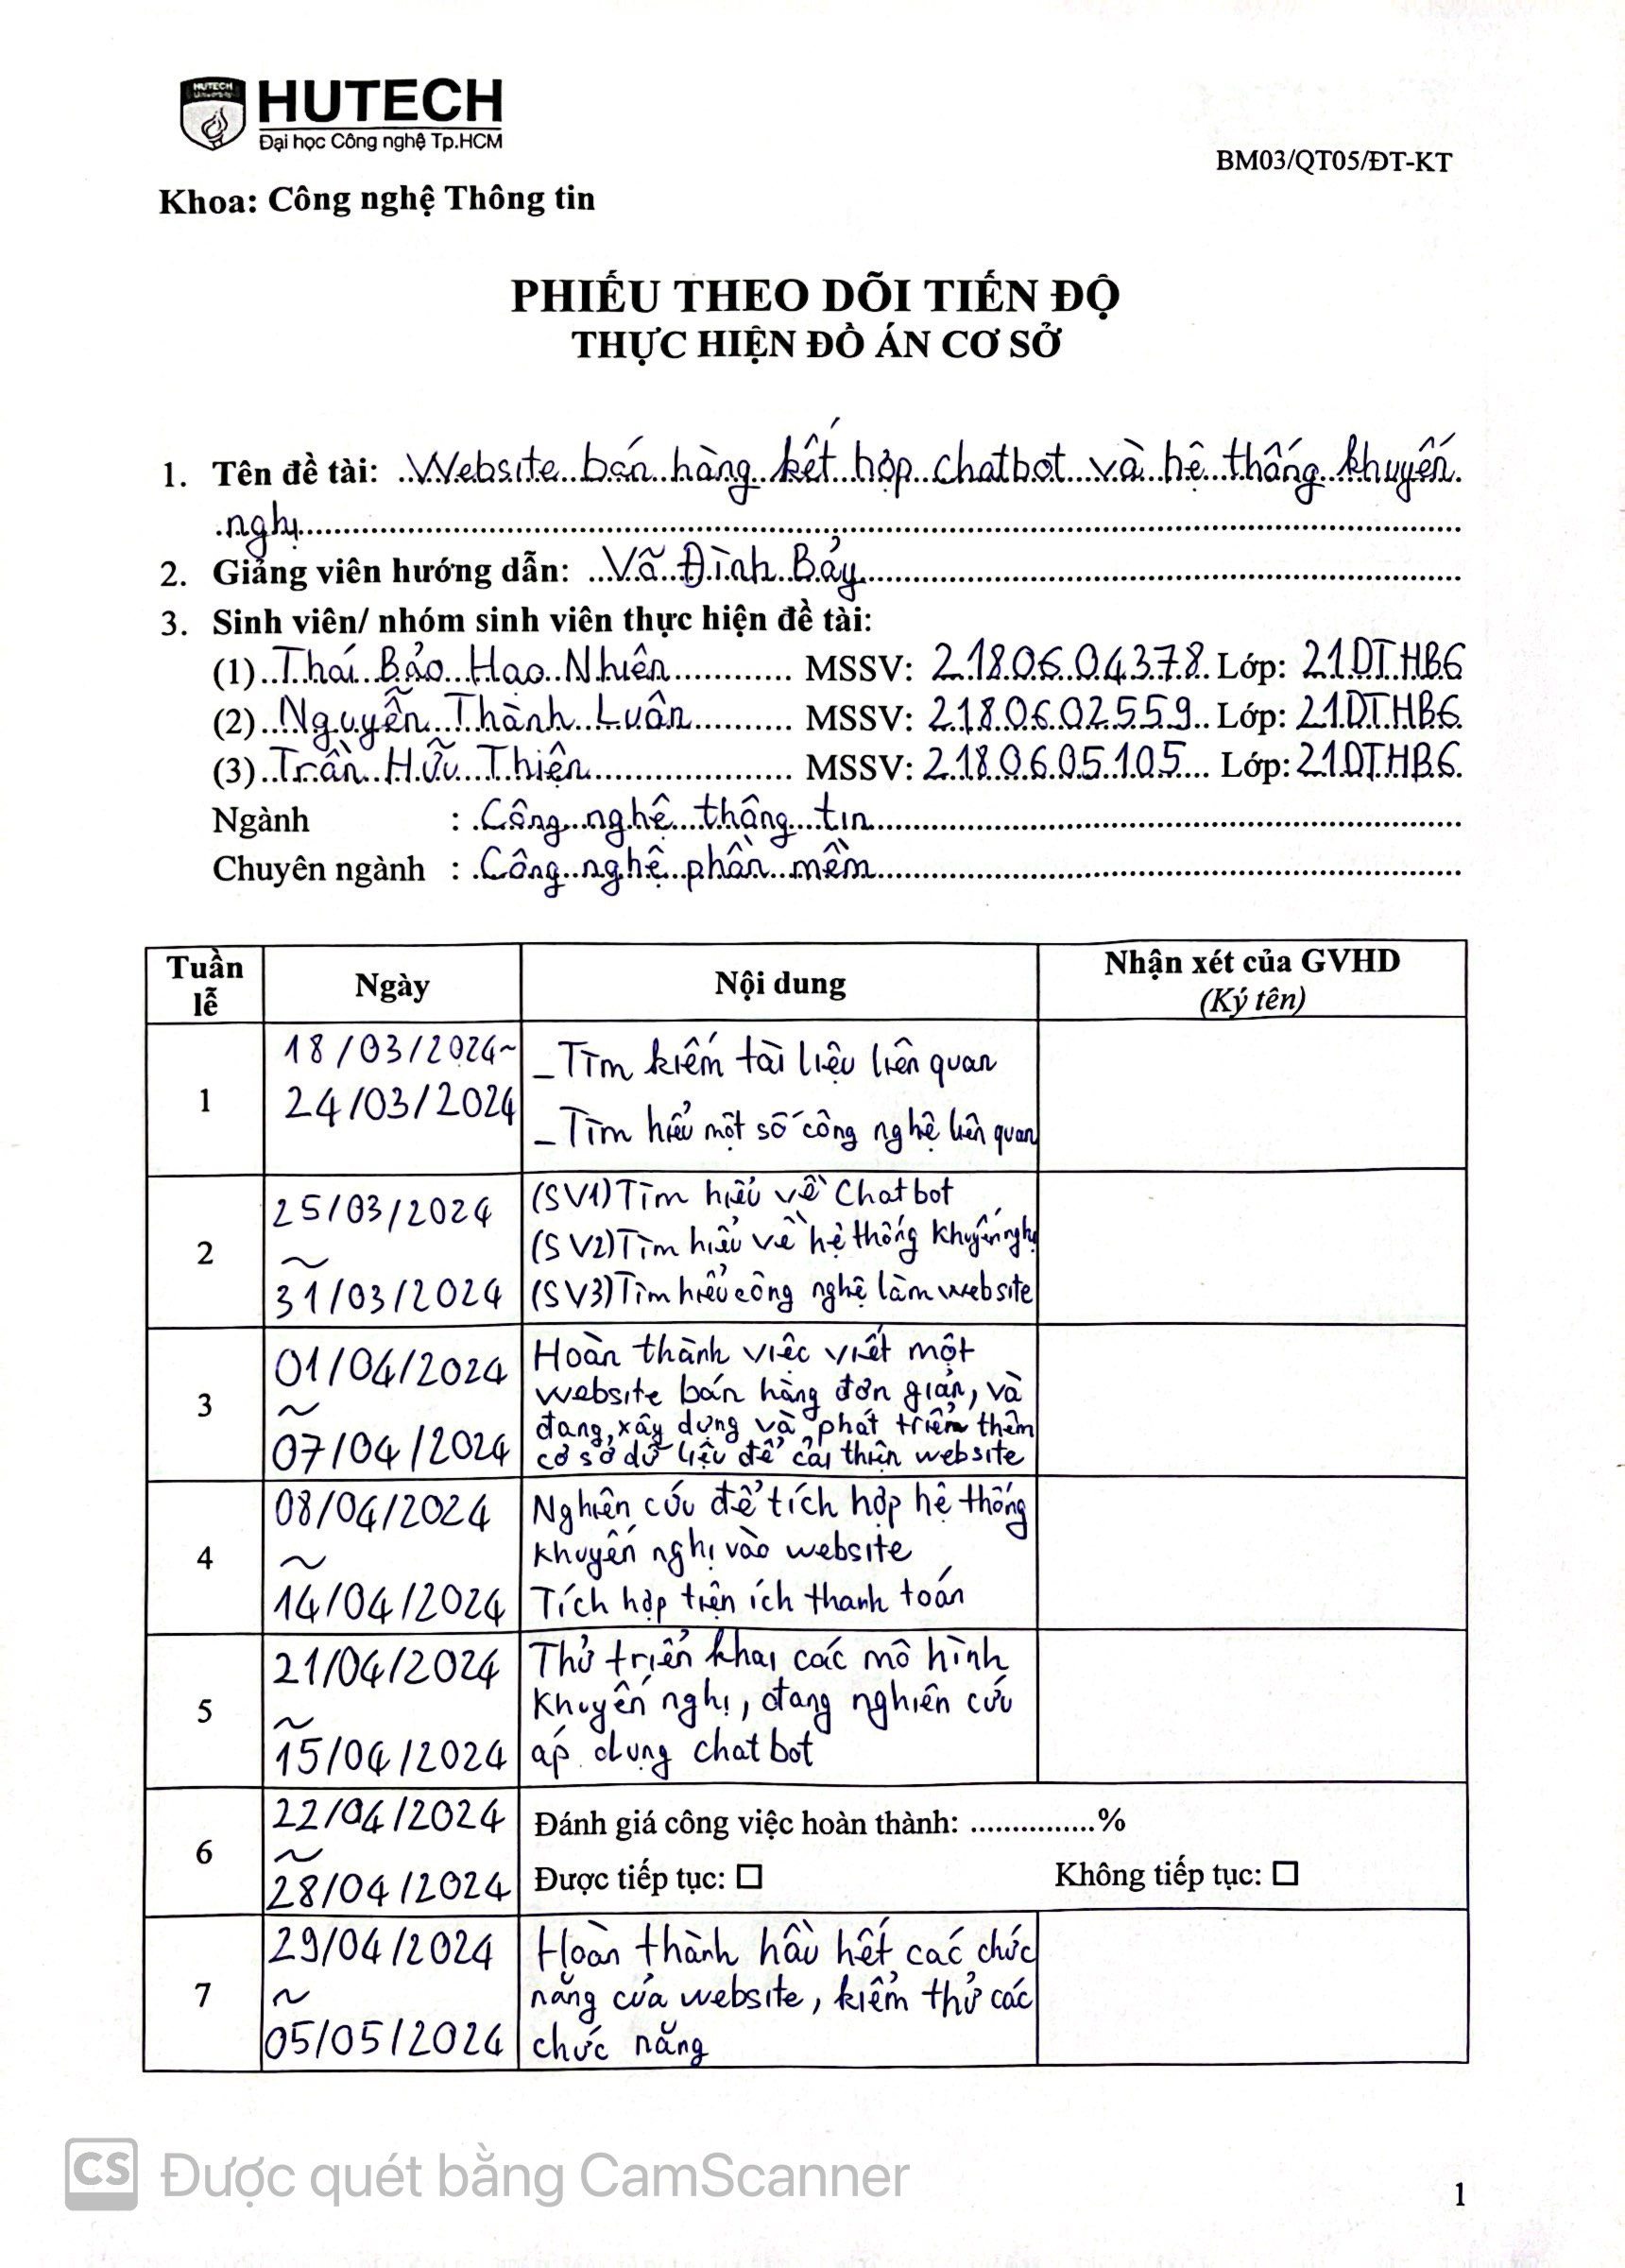 HUTECH
University
HUTECH
Đại học Công nghệ Tp.HCM
BM03/QT05/ĐT-KT
Khoa: Công nghệ Thông tin
PHIẾU THEO DÕI TIẾN ĐỘ
THỰC HIỆN ĐỒ ÁN CƠ SỞ
1. Tên đề tài: Website bán hàng kết hợp chatbot và hệ thống khuyến
nghị
2. Giảng viên hướng dẫn: Võ Đình Bảy
3. Sinh viên/ nhóm sinh viên thực hiện đề tài:
(1) Thái Bảo Hạo Nhiên MSSV: 2180604378 Lớp: 21DTHB6
(2) Nguyễn Thành Luân MSSV: 2180602559 Lớp: 21DTHB6
(3) Trần Hữu Thiện MSSV: 2180605105 Lớp: 21DTHB6
Ngành : Công nghệ thông tin
Chuyên ngành : Công nghệ phần mềm
Tuần
lễ
Ngày
Nội dung
Nhận xét của GVHD
(Ký tên)
1
18/03/2024~
24/03/2024
- Tìm kiếm tài liệu liên quan
- Tìm hiểu một số công nghệ liên quan
2
25/03/2024
~
31/03/2024
(SV1) Tìm hiểu về Chatbot
(SV2) Tìm hiểu về hệ thống khuyến nghị
(SV3) Tìm hiểu công nghệ làm website
3
01/04/2024
~
07/04/2024
Hoàn thành việc viết một
website bán hàng đơn giản, và
đang, xây dựng và phát triển thêm
cơ sở dữ liệu để cải thiện website
4
08/04/2024
~
14/04/2024
Nghiên cứu để tích hợp hệ thống
khuyến nghị vào website
Tích hợp tiện ích thanh toán
5
21/04/2024
~
15/04/2024
Thử triển khai các mô hình
khuyến nghị, đang nghiên cứu
áp dụng chatbot
6
22/04/2024
~
28/04/2024
Đánh giá công việc hoàn thành: ...............%
Được tiếp tục: ☐ Không tiếp tục: ☐
7
29/04/2024
~
05/05/2024
Hoàn thành hầu hết các chức
năng của website, kiểm thử các
chức năng
CS Được quét bằng CamScanner
1